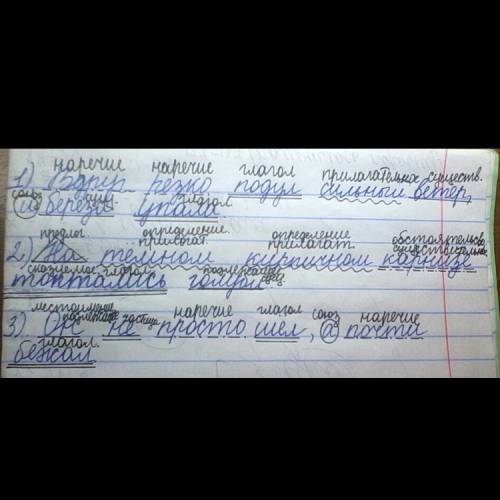 наречие наречие глагол прилагательное существ.
1) Вдруг резко подул сильный ветер,
союз сущ. глагол
и берёза упала.
предлог определение определение обстоятельство
прилагат. прилагат. существительное
2) На тёмном кирпичном карнизе
сказуемое глагол подлежащее сущ.
топтались голуби.
местоимение наречие глагол союз наречие
подлежащее частица
3) Он не просто шел, а почти
глагол.
бежал